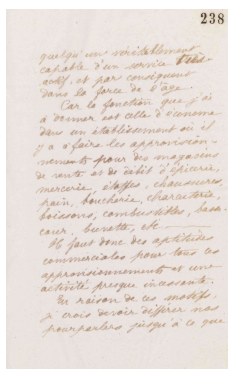 238
quelqu'un véritablement
capable d'un service très
actif, et par conséquent
dans la force de l'âge.
Car la fonction que j'ai
à donner est celle d'économe
dans un établissement où il
y a à faire les approvision-
nements pour des magasins
de vente et de débit d'épicerie,
mercerie, étoffes, chaussures,
pain, boucherie, charcuterie,
boissons, combustibles, basse
cour, buvette, etc
Il faut donc des aptitudes
commerciales pour tous ces
approvisionnements et une
activité presque incessante.
En raison de ces motifs,
je crois devoir différer nos
pourparlers jusqu'à ce que